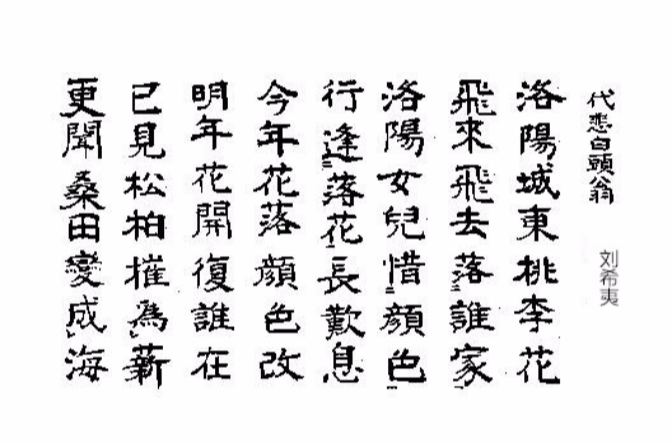 代悲白頭翁
刘希夷
洛陽城東桃李花
飛來飛去落誰家
洛陽女兒惜顔色
行逢落花長歎息
今年花落顔色改
明年花開復誰在
已見松柏摧為薪
更聞桑田變成海